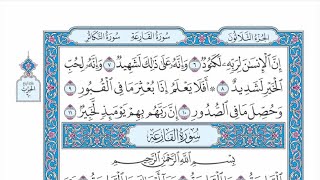 الجزء الثلاثون سورة القارعة سورة التكاثر
إِنَّ ٱلْإِنسَٰنَ لِرَبِّهِۦ لَكَنُودٌ ٦ وَإِنَّهُۥ عَلَىٰ ذَٰلِكَ لَشَهِيدٌ ٧ وَإِنَّهُۥ لِحُبِّ
ٱلْخَيْرِ لَشَدِيدٌ ٨ أَفَلَا يَعْلَمُ إِذَا بُعْثِرَ مَا فِى ٱلْقُبُورِ ٩
وَحُصِّلَ مَا فِى ٱلصُّدُورِ ١٠ إِنَّ رَبَّهُم بِهِمْ يَوْمَئِذٍ لَّخَبِيرٌۢ ١١
سُورَةُ ٱلْقَارِعَةِ
بِسْمِ ٱللَّهِ ٱلرَّحْمَٰنِ ٱلرَّحِيمِ